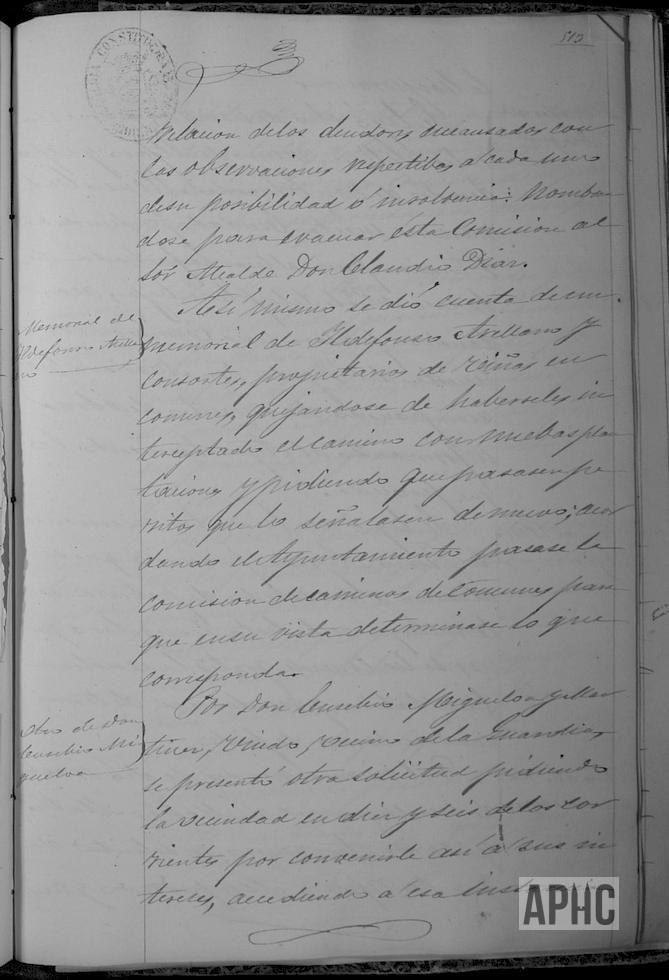 513
relacion delos deudores encausados con
las observaciones respectibas a cada uno
desu posibilidad ó insolvencia: Nombran
dose para evacuar ésta Comision al
Sör Alcalde Don Claudio Diaz.
Memorial de
Ildefonso Arella
no
Así mismo se dió cuenta de un
memorial de Ildefonso Arellano y
consortes, propietarios de viñas en
comunes, quejándose de haberseles in
terceptado el camino con nuebas plan
taciones y pidiendo que pasasen pe
ritos que lo señalasen de nuevo; acor
dando el Ayuntamiento pasase la
comision de caminos de comunes para
que en su vista determinase lo que
corresponda.
Otro de Don
Eusebio Mi
guelva
Por Don Eusebio Miguelva y Mar
tinez, Viudo, vecino de la Guardia,
se presentó otra solicitud pidiendo
la vecindad en diez y seis de los cor
rientes por convenirle asi á sus in
tereses, accediendo á esa
APHC